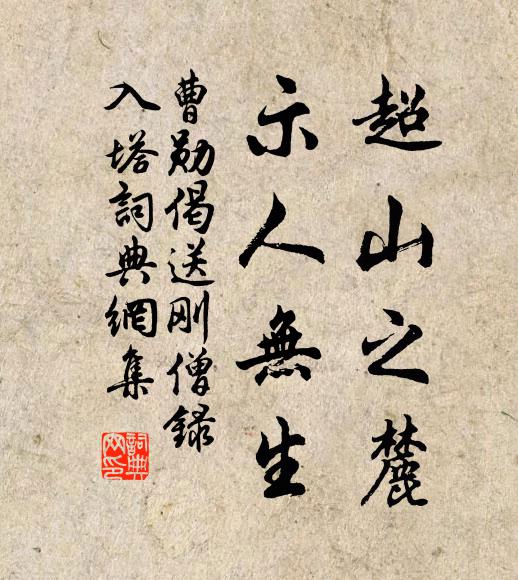 超山之麓
示人無生
曹勛偈送剛僧錄
入塔詞典網集
詞典
网印